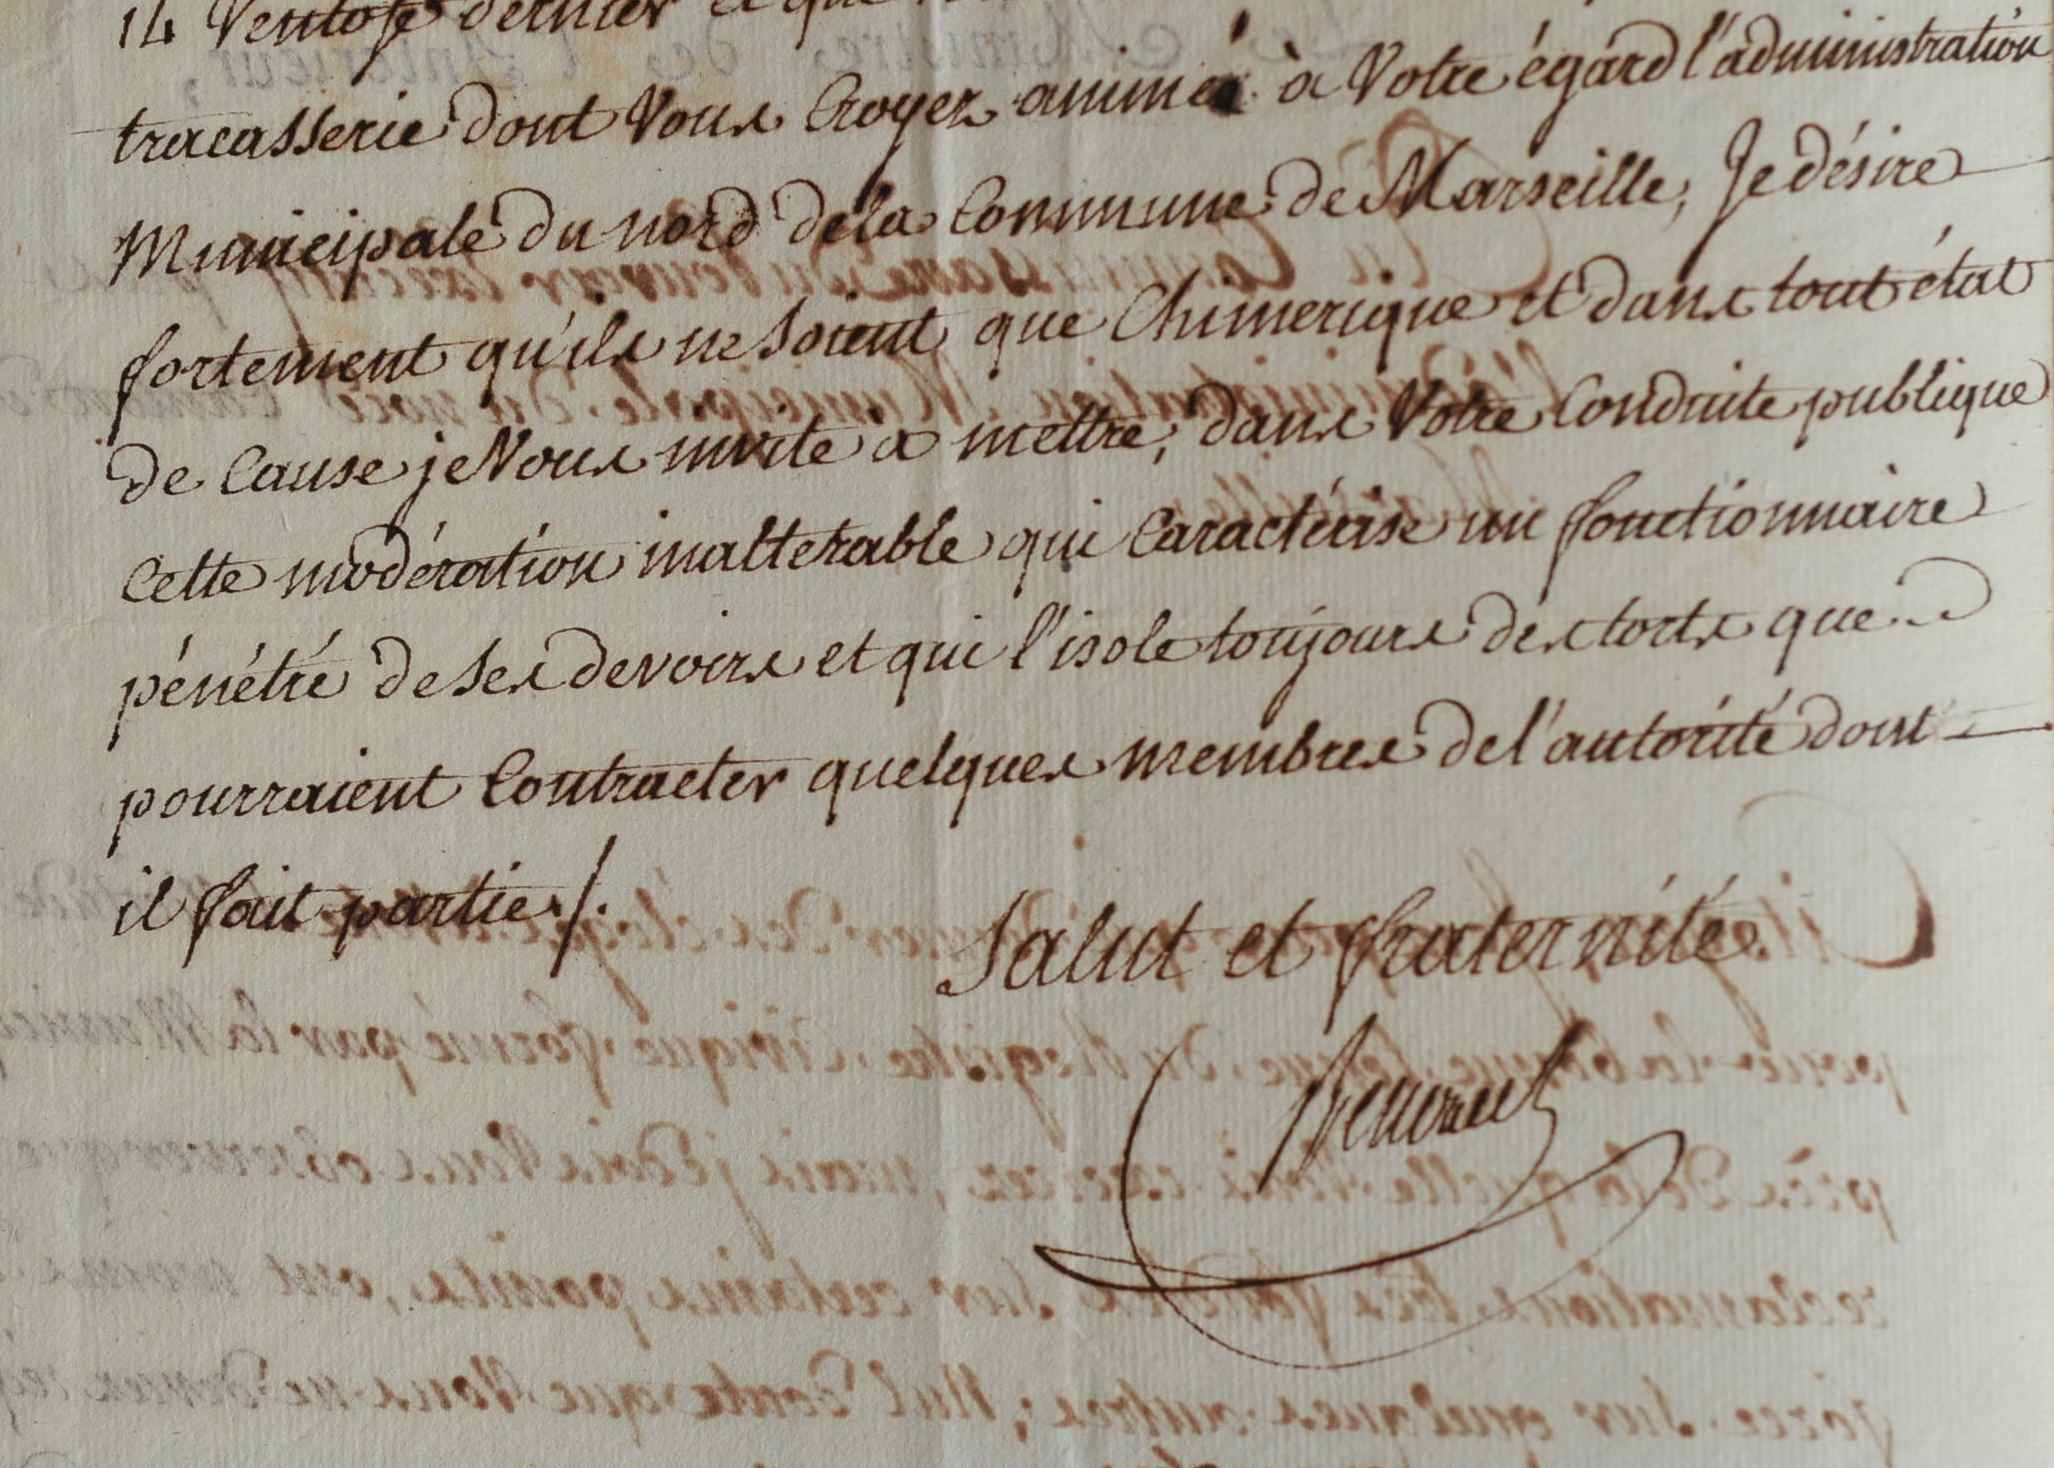 14 Ventose dernier et que
tracasserie dont Vous Croyez animée à Votre égard l'administration
Municipale du nord de la Commune de Marseille, Je désire
fortement qu'ils ne soient que Chimerique et dans tout état
de Cause je Vous invite à mettre, dans Votre Conduite publique
Cette modération inalterable qui Caractérise un fonctionnaire
pénétré de ses devoirs et qui l'isole toujours des torts que
pourraient Contracter quelques membres de l'autorité dont
il fait partie ./.
Salut et fraternité.